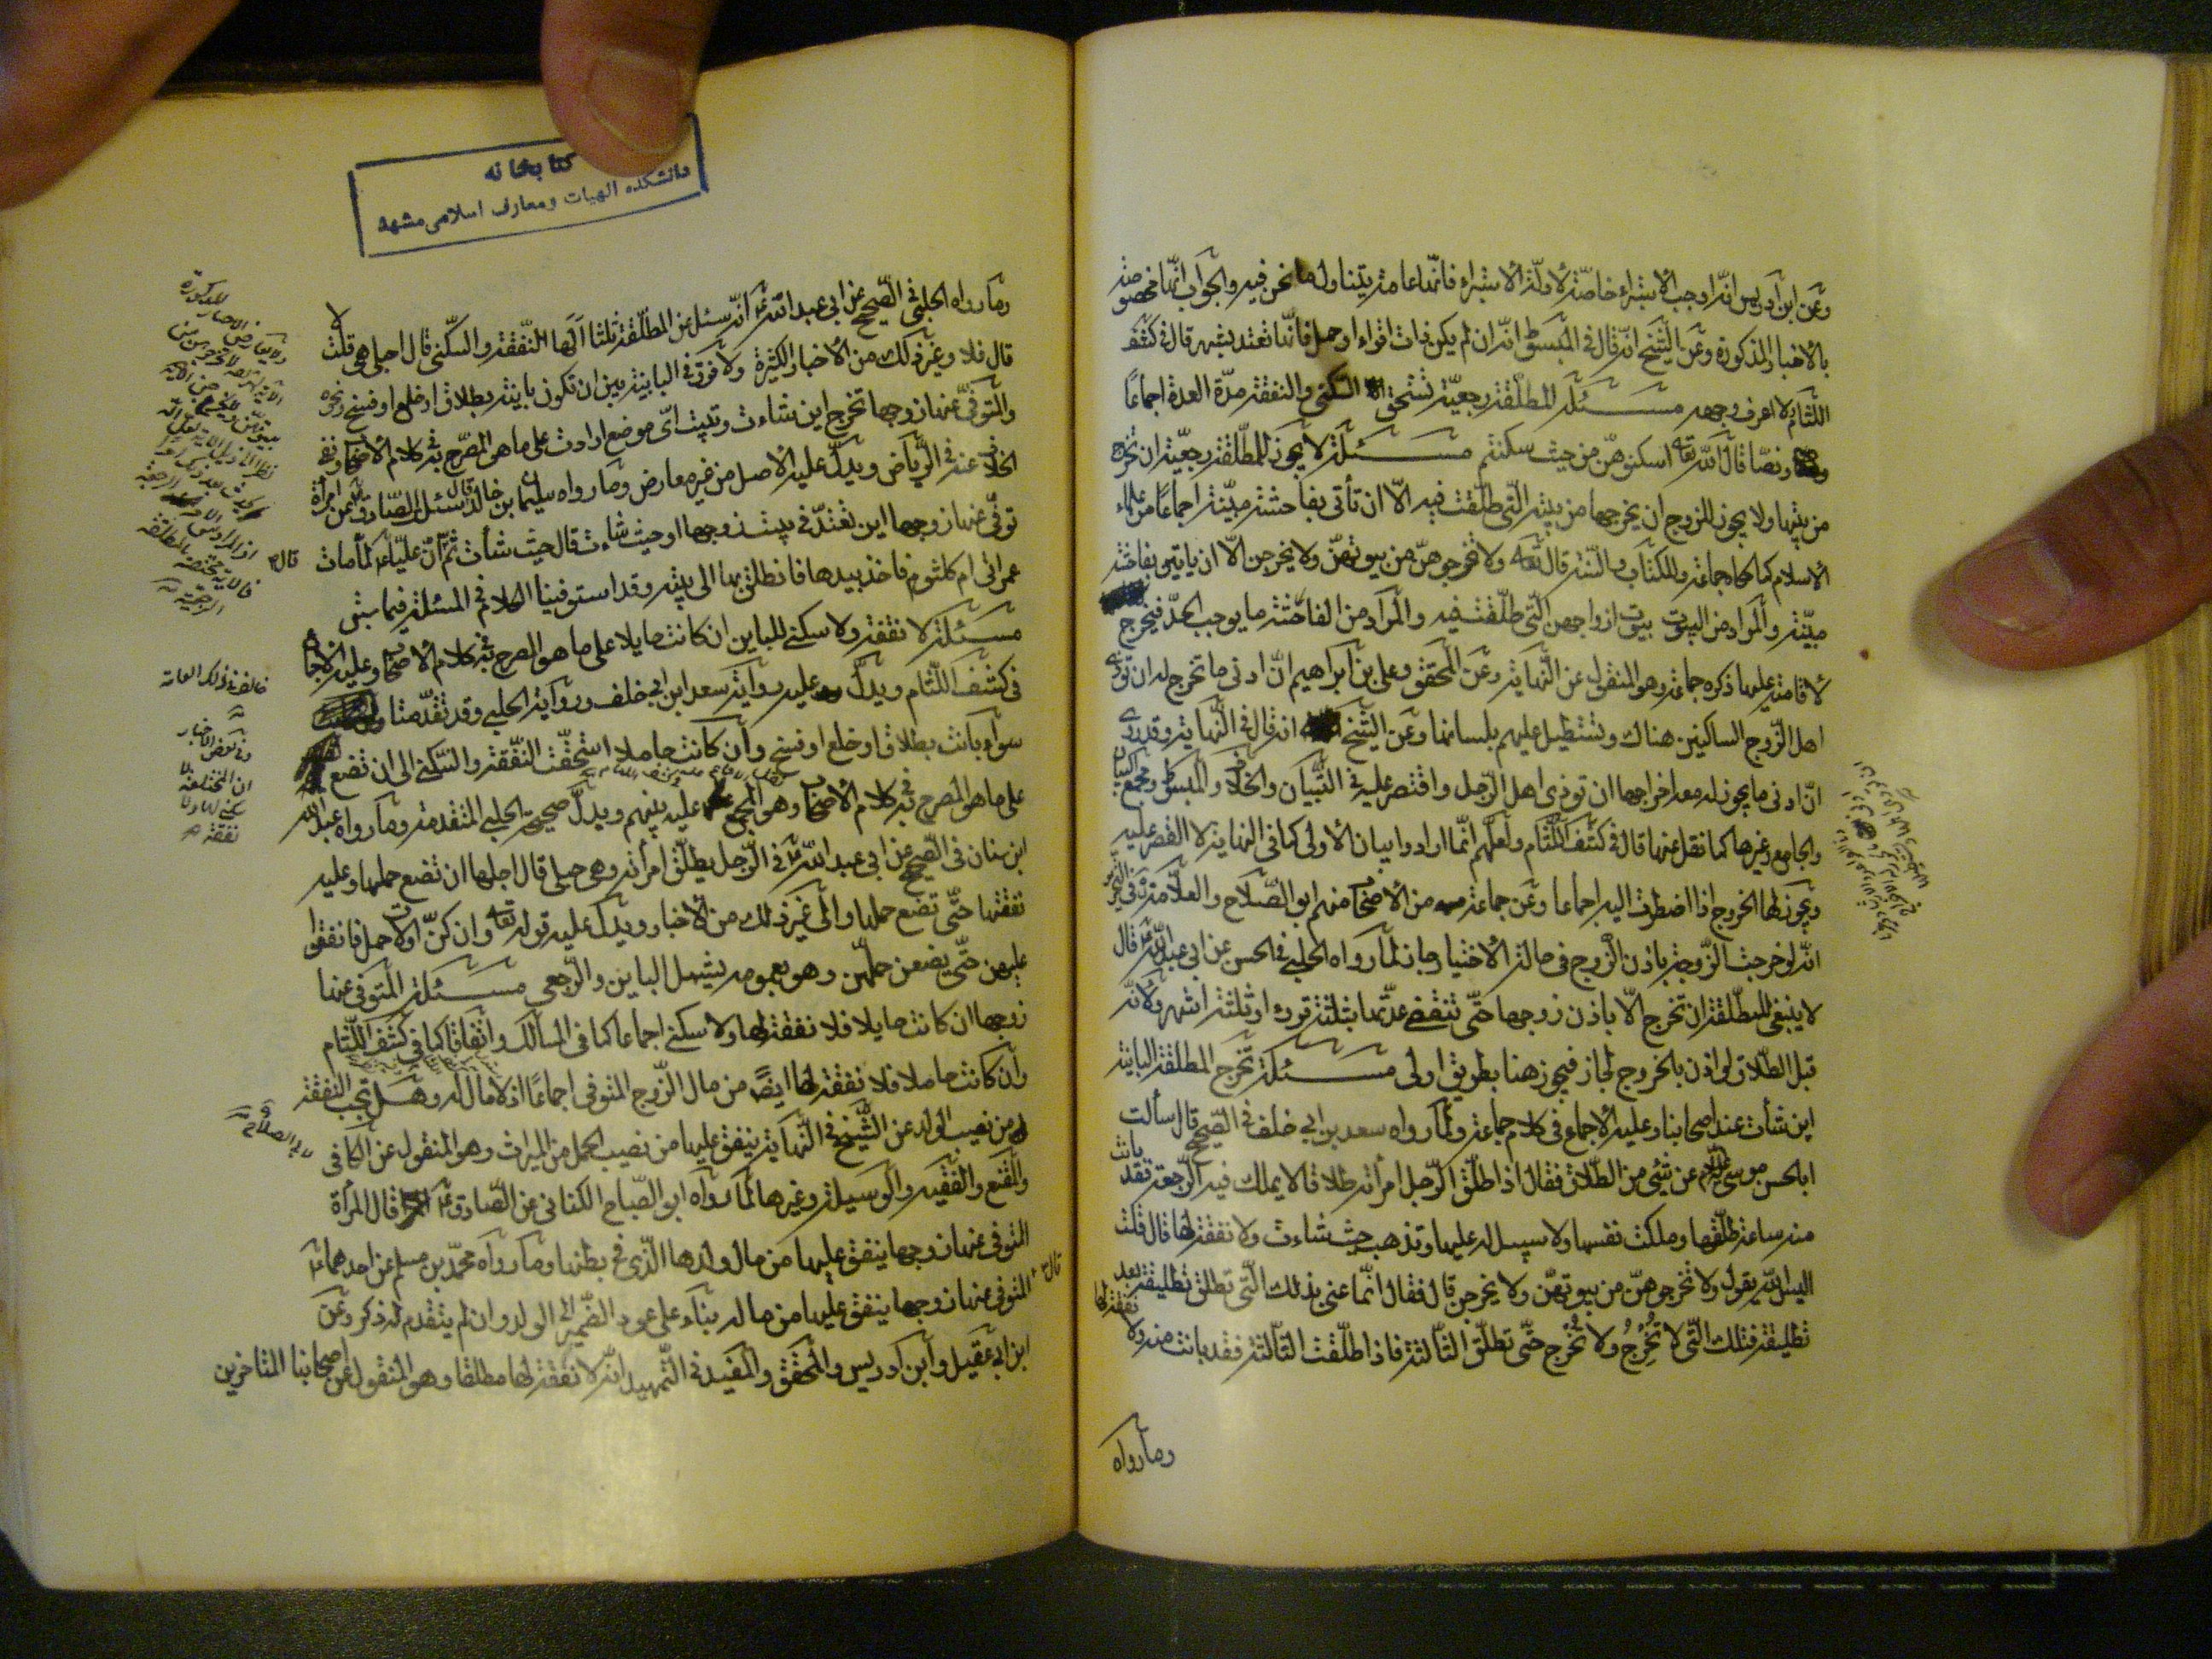 وعن ابن ادريس انه اوجب الاستبراء خاصة لادلة الاستبراء فانها عامة يتناول ما نحن فيه والجواب انها مخصوصة
بالاخبار المذكورة وعن الشيخ انه قال في المبسوط انه ان لم يكن ذات اقراء او حمل فانها تعتد بشهر قال في كشف
اللثام ولا اعرف وجهه مسئلة المطلقة رجعية تستحق السكنى والنفقة مدة العدة اجماعا
ونصا قال الله تعالى اسكنوهن من حيث سكنتم مسئلة لا يجوز للمطلقة رجعية ان تخرج
من بيتها ولا يجوز للزوج ان يخرجها من بيته التي طلقت فيه الا ان تأتي بفاحشة مبينة اجماعا من علماء
الاسلام كما حكاه جماعة وللكتاب والسنة قال تعالى ولا تخرجوهن من بيوتهن ولا يخرجن الا ان ياتين بفاحشة
مبينة والمراد من البيوت بيوت ازواجهن التي طلقت فيه والمراد من الفاحشة ما يوجب الحد فيخرج
لاقامته عليها ذكره جماعة وهو المنقول عن النهاية وعن المحقق وعلي بن ابراهيم ان ادنى ما تخرج له ان تؤذي
اهل الزوج الساكنين هناك وتستطيل عليهم بلسانها وعن الشيخ انه قال في النهاية وقد روي
ان ادنى ما يجوز له معه اخراجها ان توذى اهل الرجل واقتصر عليه في التبيان والخلاف والمبسوط ومجمع البيان
والجامع وغيرها كما نقل عنها قال في كشف اللثام ولعلهم انما ارادوا بيان الاولى كما في النهاية لا القصر عليه
ويجوز لها الخروج اذا اضطرت اليه اجماعا وعن جماعة من الاصحاب منهم ابو الصلاح والعلامة ره في التحرير
انه لو خرجت الزوجة باذن الزوج في حالة الاختيار جاز لما رواه الحلبي في الحسن عن ابي عبد الله ع قال
لا ينبغي للمطلقة ان تخرج الا باذن زوجها حتى تنقضي عدتها بثلثة قروء او ثلثة اشهر ولانه
قبل الطلاق لو اذن بالخروج لجاز فيجوز هنا بطريق اولى مسئلة تخرج المطلقة الباينة
اين شأت عند اصحابنا وعليه الاجماع في كلام جماعة ولما رواه سعد بن ابي خلف في الصحيح قال سألت
ابا الحسن موسى عن شئ من الطلاق فقال اذا طلق الرجل امرأته طلاقا لا يملك فيه الرجعة فقد بانت
منه ساعة طلقها وملكت نفسها ولا سبيل له عليها وتذهب حيث شاءت ولا نفقة لها قال قلت
اليس الله يقول ولا تخرجوهن من بيوتهن ولا يخرجن قال فقال انما عنى بذلك التي تطلق تطليقة بعد
تطليقة فتلك التي لا تُخرَجُ ولا تَخرُج حتى تطلق الثالثة فاذا طلقت الثالثة فقد بانت منه ولا نفقة لها
وما رواه
كتابخانه
دانشكده الهيات ومعارف اسلامى مشهد
وما رواه الحلبي في الصحيح عن ابي عبد الله ع انه سئل عن المطلقة ثلثا الها النفقة والسكنى قال احبلى هي قلت لا
قال فلا وغير ذلك من الاخبار الكثيرة ولا فرق في الباينة بين ان تكون باينة بطلاق او خلع او فسخ ونحوه
والمتوفى عنها زوجها تخرج اين شاءت وتبيت اي موضع ارادت على ما هو المصرح به في كلام الاصحاب ونفى
الخلاف عنه في الرياض ويدل عليه الاصل من غير معارض وما رواه سليمان بن خالد قال سئل الصادق ع عن امرأة
توفي عنها زوجها اين تعتد في بيت زوجها او حيث شاءت قال حيث شأت ثم قال ان عليا ع لما مات
عمر اتى ام كلثوم فاخذ بيدها فانطلق بها الى بيته وقد استوفينا الكلام في المسئلة فيما سبق
مسئلة لا نفقة ولا سكنى للباين ان كانت حايلا على ما هو المصرح به في كلام الاصحاب وعليه الاجماع
في كشف اللثام ويدل عليه رواية سعد ابن ابي خلف ورواية الحلبي وقد تقدمتا
سواء بانت بطلاق او خلع او فسخ وان كانت حاملا استحقت النفقة والسكنى الى ان تضع
على ما هو المصرح به في كلام الاصحاب وهو المجمع عليه بينهم ويدل صحيحة الحلبي المتقدمة وما رواه عبد الله
ابن سنان في الصحيح عن ابي عبد الله ع في الرجل يطلق امرأته وهي حبلى قال اجلها ان تضع حملها وعليه
نفقتها حتى تضع حملها والى غير ذلك من الاخبار ويدل عليه قوله تعالى وان كن اولات حمل فانفقوا
عليهن حتى يضعن حملهن وهو بعمومه يشمل الباين والرجعي مسئلة المتوفى عنها
زوجها ان كانت حايلا فلا نفقة لها ولا سكنى اجماعا كما في المسالك واتفاقا كما في كشف اللثام
وان كانت حاملا فلا نفقة لها ايضا من مال الزوج المتوفى اجماعا اذ لا مال له وهل تجب النفقة
من نصيب الولد عن الشيخ في النهاية ينفق عليها من نصيب الحمل من الميراث وهو المنقول عن الكافي
لابي الصلاح
والمقنع والفقيه والوسيلة وغيرها لما رواه ابو الصباح الكناني عن الصادق ع قال المرأة
المتوفى عنها زوجها ينفق عليها من مال ولدها الذي في بطنها وما رواه محمد بن مسلم عن احدهما ع قال
المتوفى عنها زوجها ينفق عليها من ماله بناء على عود الضمير الى الولد وان لم يتقدم له ذكر وعن
ابن ابي عقيل وابن ادريس والمحقق والمفيد في التمهيد انه لا نفقة لها مطلقا وهو المنقول عن اصحابنا المتاخرين
خالف في ذلك العامة
وفي بعض الاخبار
ان المختلعة لا
سكنى لها ولا
نفقة